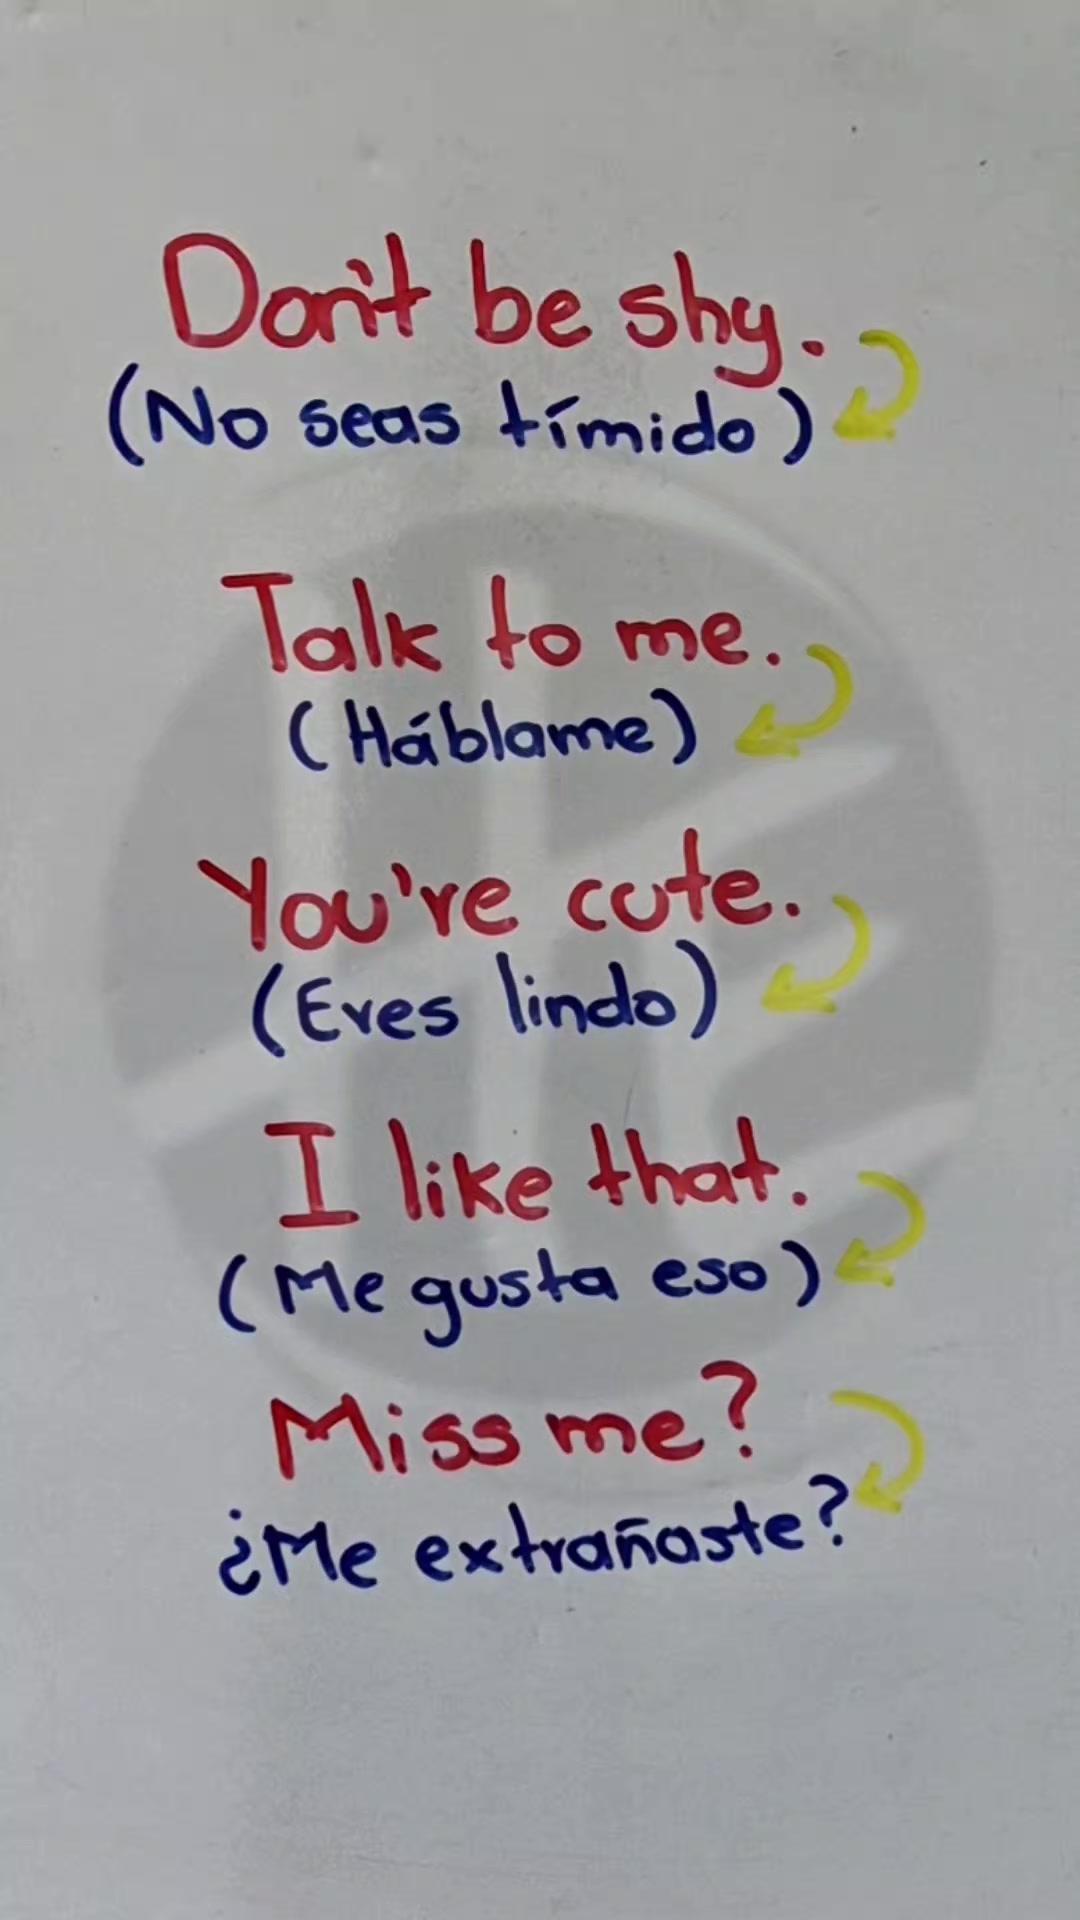 Don't be shy.
(No seas tímido)
Talk to me.
(Háblame)
You're cute.
(Eres lindo)
I like that.
(Me gusta eso)
Miss me?
¿Me extrañaste?